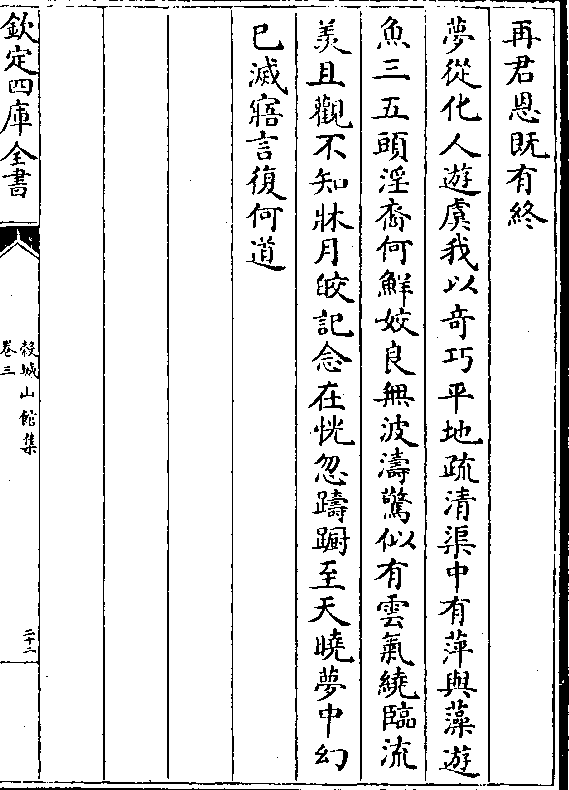 再君恩既有終
夢從化人遊虞我以奇巧平地疏清渠中有萍與藻遊
魚三五頭淫裔何鮮姣良無波濤驚似有雲氣繞臨流
美且觀不知牀月皎記念在恍忽躊躕至天曉夢中幻
已滅寤言復何道
欽定四庫全書
穀城山館集
卷三
二十二